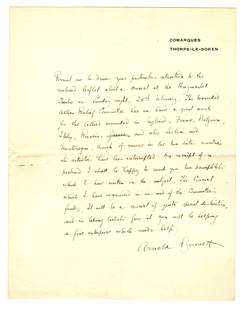 COMARQUES
THORPE-LE-SOKEN
Permit me to draw your particular attention to the
enclosed leaflet about a concert at the Haymarket
Theatre on Sunday night, 28th February. The Wounded
Allies Relief Committee has in hand a great work
for the Allied wounded in England, France, Belgium,
Italy, Russia, and also Serbia and
Montenegro, though of course in the two latter countries
its activities have been interrupted. On receipt of a
postcard I shall be happy to send you two pamphlets
which I have written on the subject. The Concert
which I have organised is in aid of the Committee's
funds. It will be a concert of quite special distinction,
and in taking tickets for it you will be helping
a fine enterprise which needs help.
Arnold Bennett